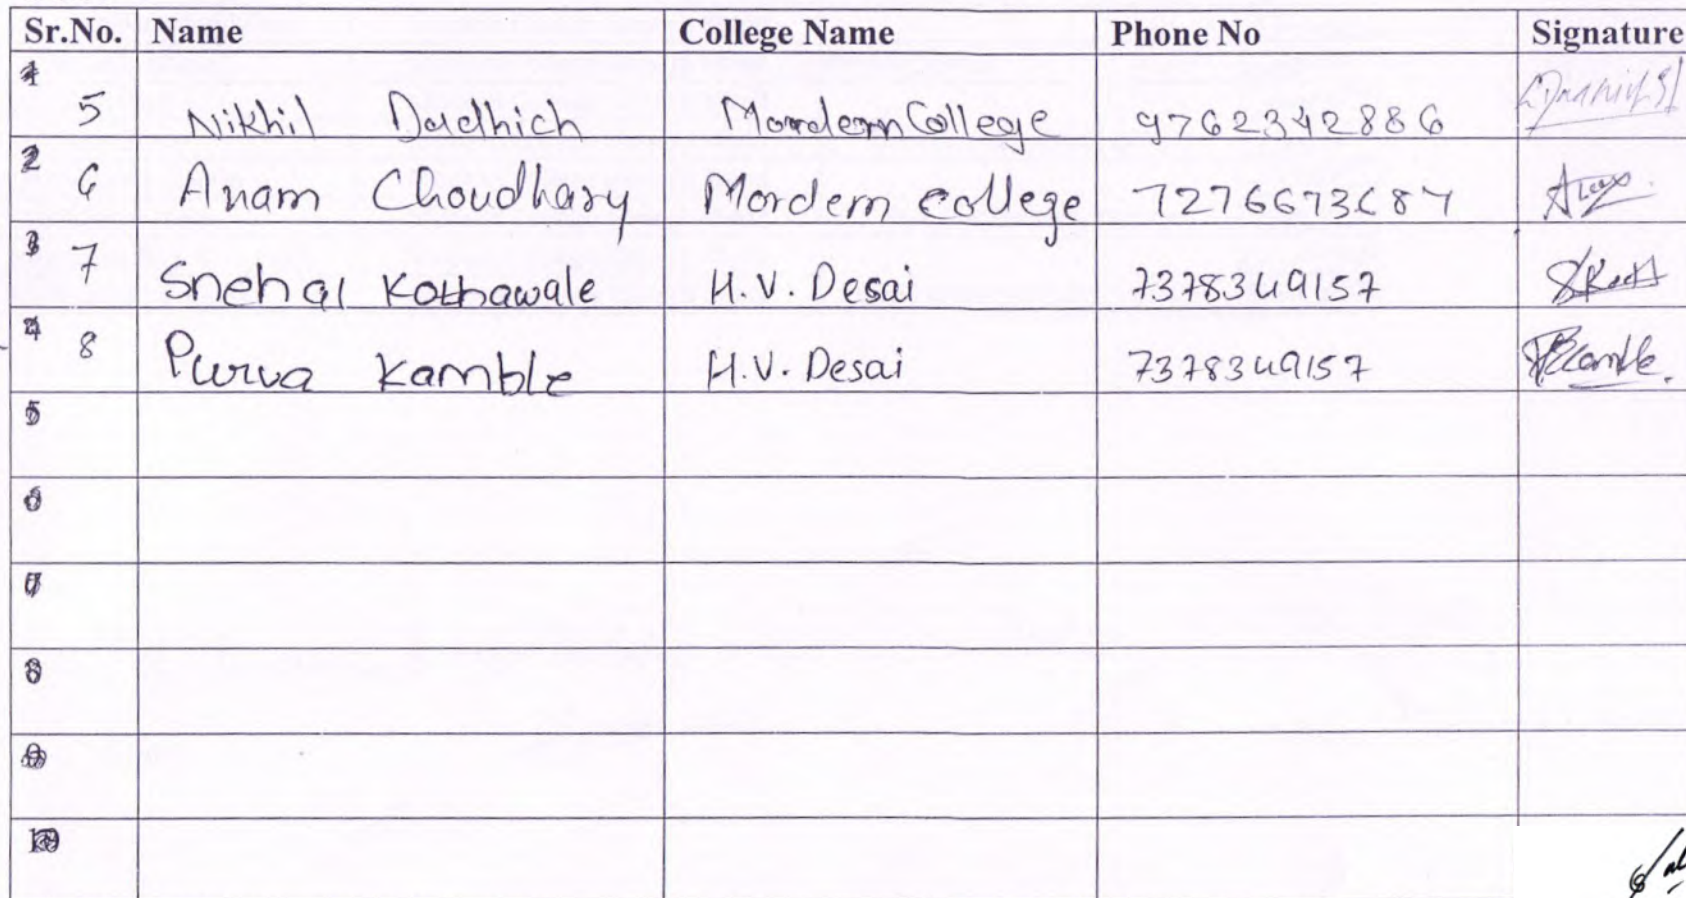 Sr.No. Name College Name Phone No Signature
1 5 Nikhil Dadhich Mordern College 9762342886
2 6 Anam Choudhary Mordern College 7276673687
3 7 Snehal Kothawale H.V. Desai 7378349157
4 8 Purva Kamble H.V. Desai 7378349157
5
6
7
8
9
10